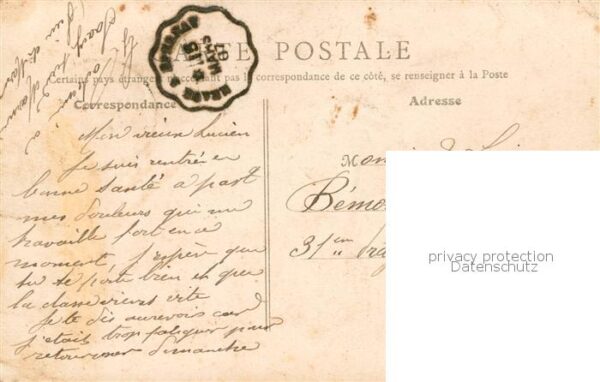 CARTE POSTALE
Certains pays étrangers n'acceptant pas la correspondance de ce côté, se renseigner à la Poste
Correspondance
Adresse
Mon vieux Lucien
Je suis rentré en
bonne santé a part
mes douleurs qui me
travaille fort en ce
moment, j'espère que
tu te porte bien et que
la classe viens vite
Je te dis aurevoir car
j'etais trop fatiguer pour
retourner dimanche
Mon
Bémo
31em
privacy protection
Datenschutz